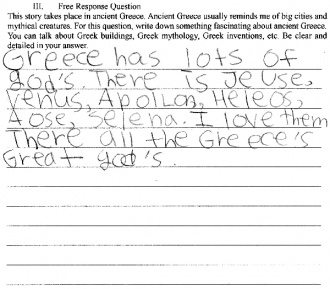 III. Free Response Question
This story takes place in ancient Greece. Ancient Greece usually reminds me of big cities and
mythical creatures. For this question, write down something fascinating about ancient Greece.
You can talk about Greek buildings, Greek mythology, Greek inventions, etc. Be clear and
detailed in your answer.
Greece has lots of
god's. There is Jeuse,
Venus, Apollon, Heleos,
Aose, Selena. I love them
There all the Greece's
Great god's.